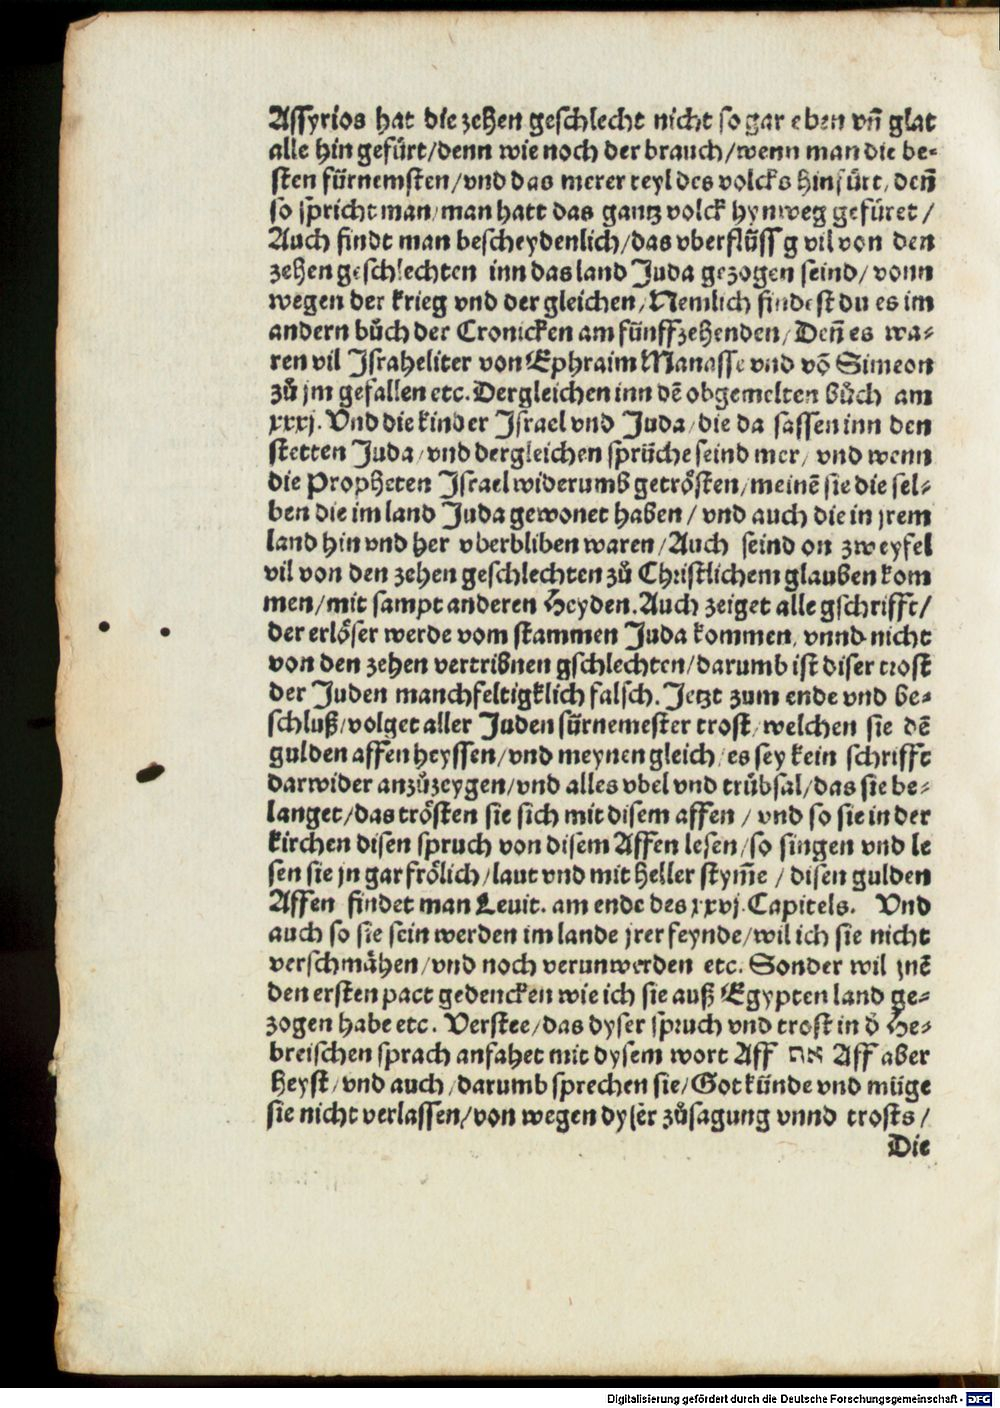 Assyrios hat die zehen geschlecht nicht so gar eben vñ glat
alle hin gefürt/denn wie noch der brauch/wenn man die be⸗
sten fürnemsten/vnd das merer teyl des volcks hinfürt, deñ
so spricht man/man hatt das gantz volck hynweg gefüret/
Auch findt man bescheydenlich/das vberflüssg vil von den
zehen geschlechten inn das land Juda gezogen seind/vonn
wegen der krieg vnd der gleichen/Nemlich findest du es im
andern bůch der Cronicken am fünffzehenden/Deñ es wa⸗
ren vil Israheliter von Ephraim Manasse vnd võ Simeon
zů jm gefallen etc. Dergleichen inn dẽ obgemelten bůch am
xxxj. Vnd die kinder Israel vnd Juda/die da sassen inn den
stetten Juda/vnd dergleichen sprüche seind mer/vnd wenn
die Propheten Israel widerumb getrösten/meinẽ sie die sel⸗
ben die im land Juda gewonet haben/vnd auch die in jrem
land hin vnd her vberbliben waren/Auch seind on zweyfel
vil von den zehen geschlechten zů Christlichem glauben kom
men/mit sampt anderen Heyden. Auch zeiget alle gschrifft/
der erlöser werde vom stammen Juda kommen, vnnd nicht
von den zehen vertribnen gschlechten/darumb ist diser trost
der Juden manchfeltigklich falsch. Jetzt zum ende vnd be⸗
schluß/volget aller Juden fürnemester trost/welchen sie dẽ
gulden affen heyssen/vnd meynen gleich/es sey kein schrifft
darwider anzůzeygen/vnd alles vbel vnd trübsal/das sie be⸗
langet/das trösten sie sich mit disem affen/vnd so sie in der
kirchen disen spruch von disem Affen lesen/so singen vnd le
sen sie jn gar frölich/laut vnd mit heller stym̃e/disen gulden
Affen findet man Leuit. am ende des xxvj. Capitels. Vnd
auch so sie sein werden im lande jrer feynde/wil ich sie nicht
verschmähen/vnd noch verunwerden etc. Sonder wil jnẽ
den ersten pact gedencken wie ich sie auß Egypten land ge⸗
zogen habe etc. Verstee/das dyser spruch vnd trost in d̓ He⸗
breischen sprach anfahet mit dysem wort Aff אף Aff aber
heyst/vnd auch/darumb sprechen sie/Got künde vnd müge
sie nicht verlassen/von wegen dyser zůsagung vnnd trosts/
Die
Digitalisierung gefördert durch die Deutsche Forschungsgemeinschaft - DFG